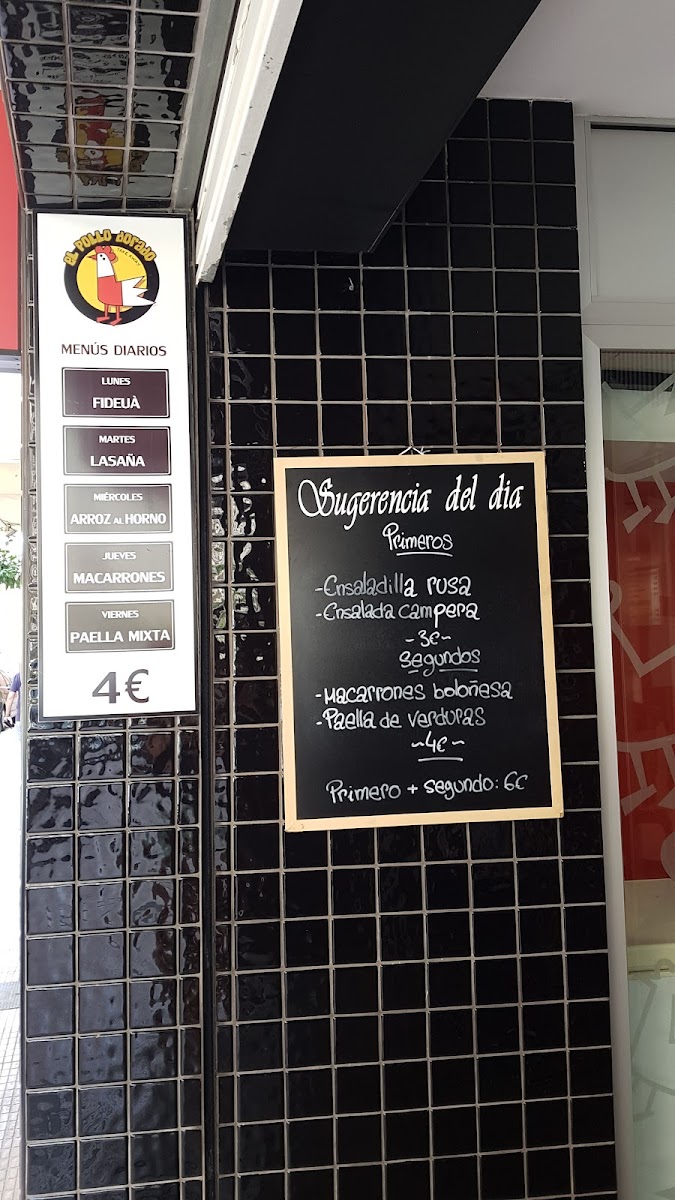 al POLLO dorado
TAKE AWAY
MENÚS DIARIOS
LUNES
FIDEUÀ
MARTES
LASAÑA
MIÉRCOLES
ARROZ AL HORNO
JUEVES
MACARRONES
VIERNES
PAELLA MIXTA
4€
Sugerencia del dia
Primeros
-Ensaladilla rusa
-Ensalada campera
-3€-
Segundos
-Macarrones boloñesa
-Paella de verduras
~4€~
Primero + segundo: 6€